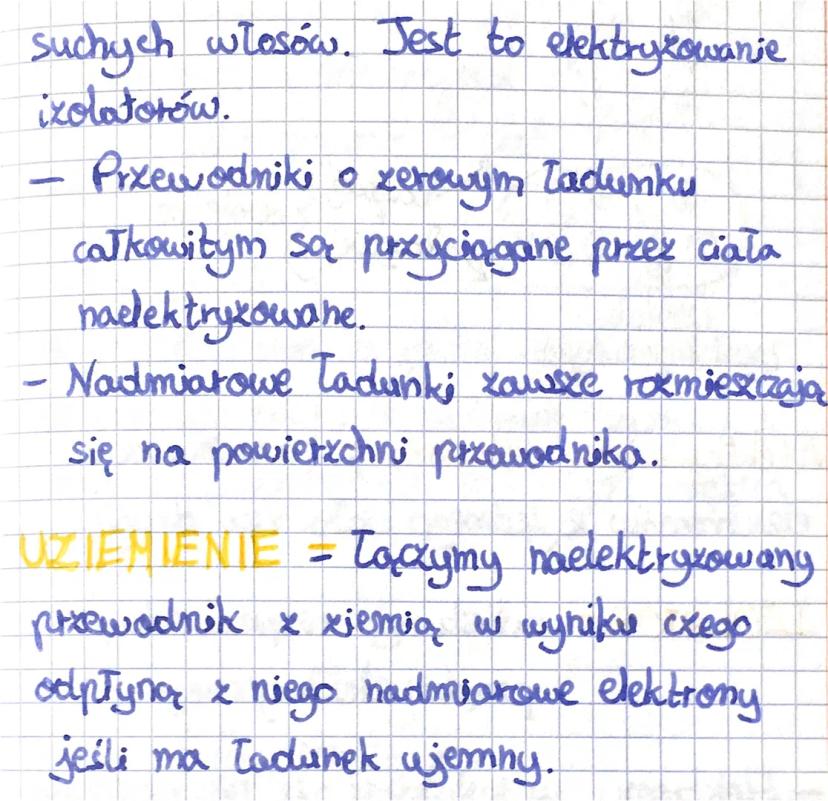 suchych włosów. Jest to elektryzowanie
izolatorów.
– Przewodniki o zerowym ładunku
całkowitym są przyciągane przez ciała
naelektryzowane.
– Nadmiarowe ładunki zawsze rozmieszczają
się na powierzchni przewodnika.
UZIEMIENIE = łączymy naelektryzowany
przewodnik z ziemią w wyniku czego
odpłyną z niego nadmiarowe elektrony
jeśli ma ładunek ujemny.